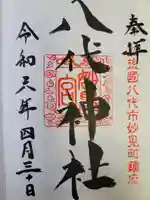 奉拝
肥後國八代市妙見町鎮座
八代神社
令和六年四月三十日